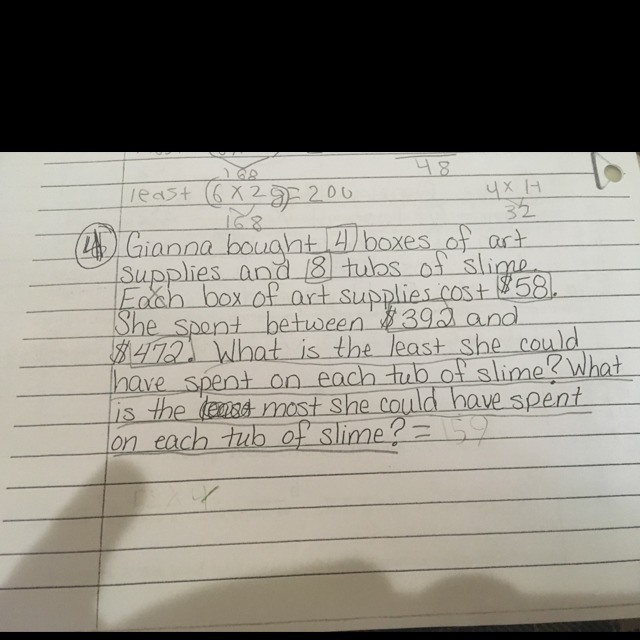 48
least (6 x 28) = 200
168
4 x 1
32
4 Gianna bought 4 boxes of art
supplies and 8 tubs of slime.
Each box of art supplies cost $58.
She spent between $392 and
$472. What is the least she could
have spent on each tub of slime? What
is the most she could have spent
on each tub of slime? = 159